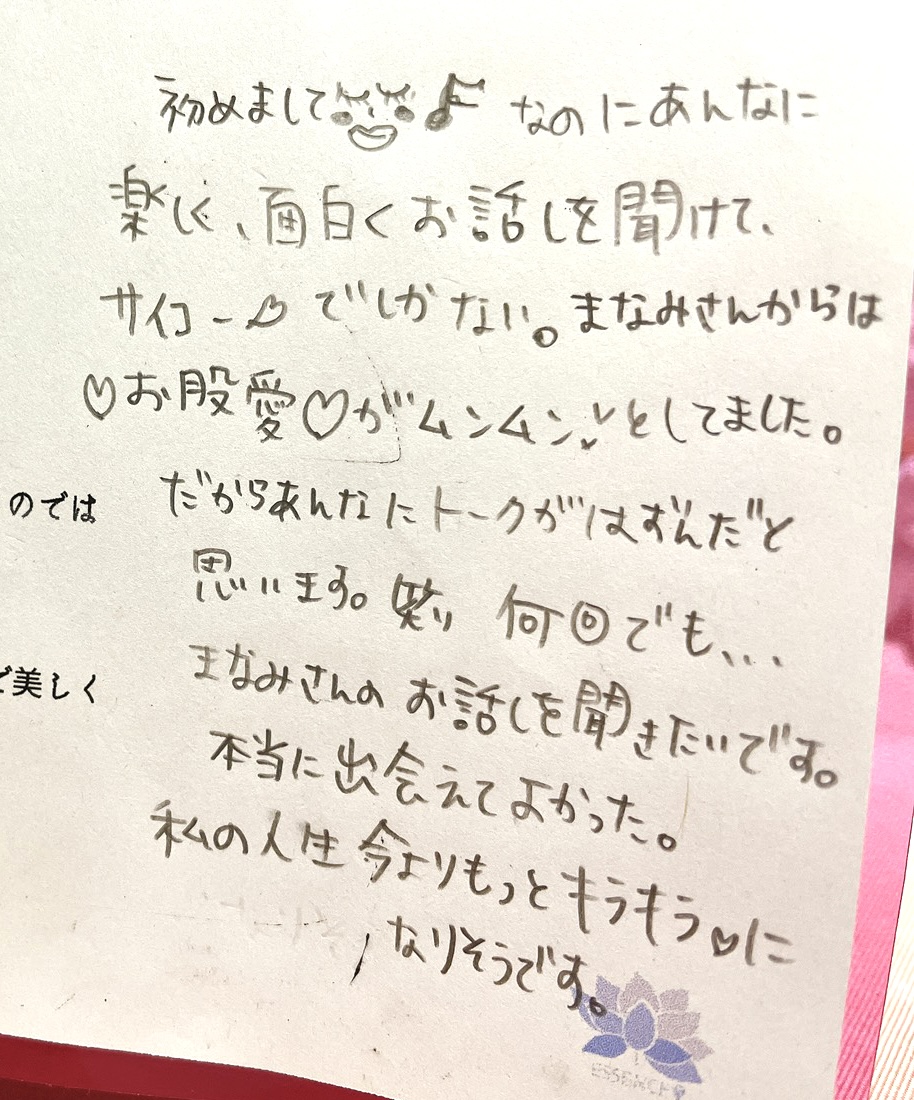 初めまして♪ なのにあんなに
楽しく、面白くお話しを聞けて、
サイコー♡でしかない。まなみさんからは
♡お股愛♡がムンムンとしてました。
だからあんなにトークがはずんだと
のでは
思います。笑 何回でも...
まなみさんのお話しを聞きたいです。
で美しく
本当に出会えてよかった。
私の人生今よりもっとキラキラ♡に
なりそうです。
ESSENCE